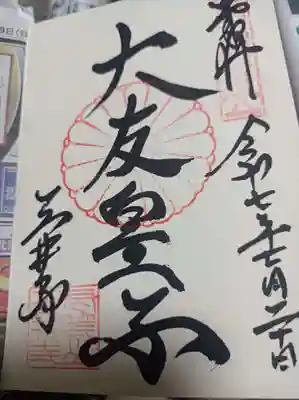 奉拝
令和七年七月二十日
大友皇子
三井寺